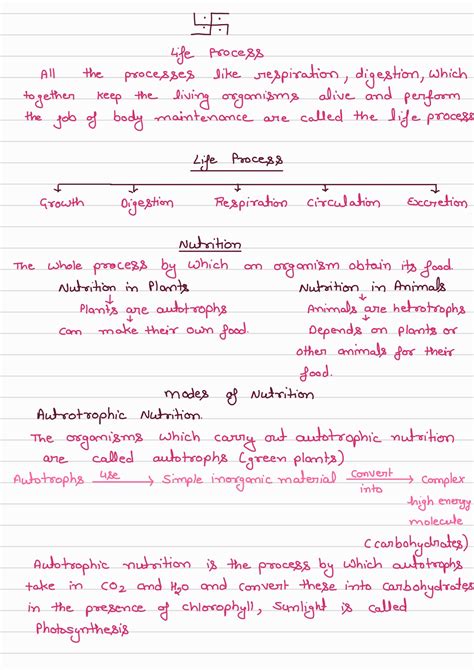 Life Process
All the processes like respiration, digestion, which
together keep the living organisms alive and perform
the job of body maintenance are called the life process
Life Process
Growth Digestion Respiration Circulation Excretion
Nutrition
The whole process by which an organism obtain its food.
Nutrition in Plants Nutrition in Animals
Plants are autotrophs Animals are hetrotrophs
can make their own food. Depends on plants or
other animals for their
food.
Modes of Nutrition
Autrotrophic Nutrition.
The organisms which carry out autotrophic nutrition
are called autotrophs (green plants)
Autotrophs use → Simple inorganic material convert into → Complex
high energy
molecule
(carbohydrates)
Autotrophic nutrition is the process by which autotrophs
take in CO2 and H2O and convert these into carbohydrates
in the presence of chlorophyll, sunlight is called
Photosynthesis